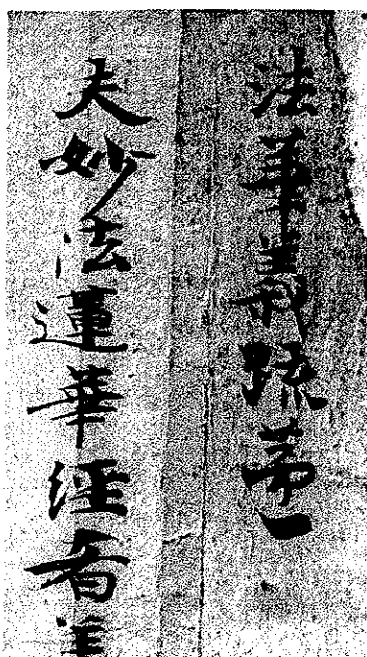 法華義疏第一
夫妙法蓮華経者